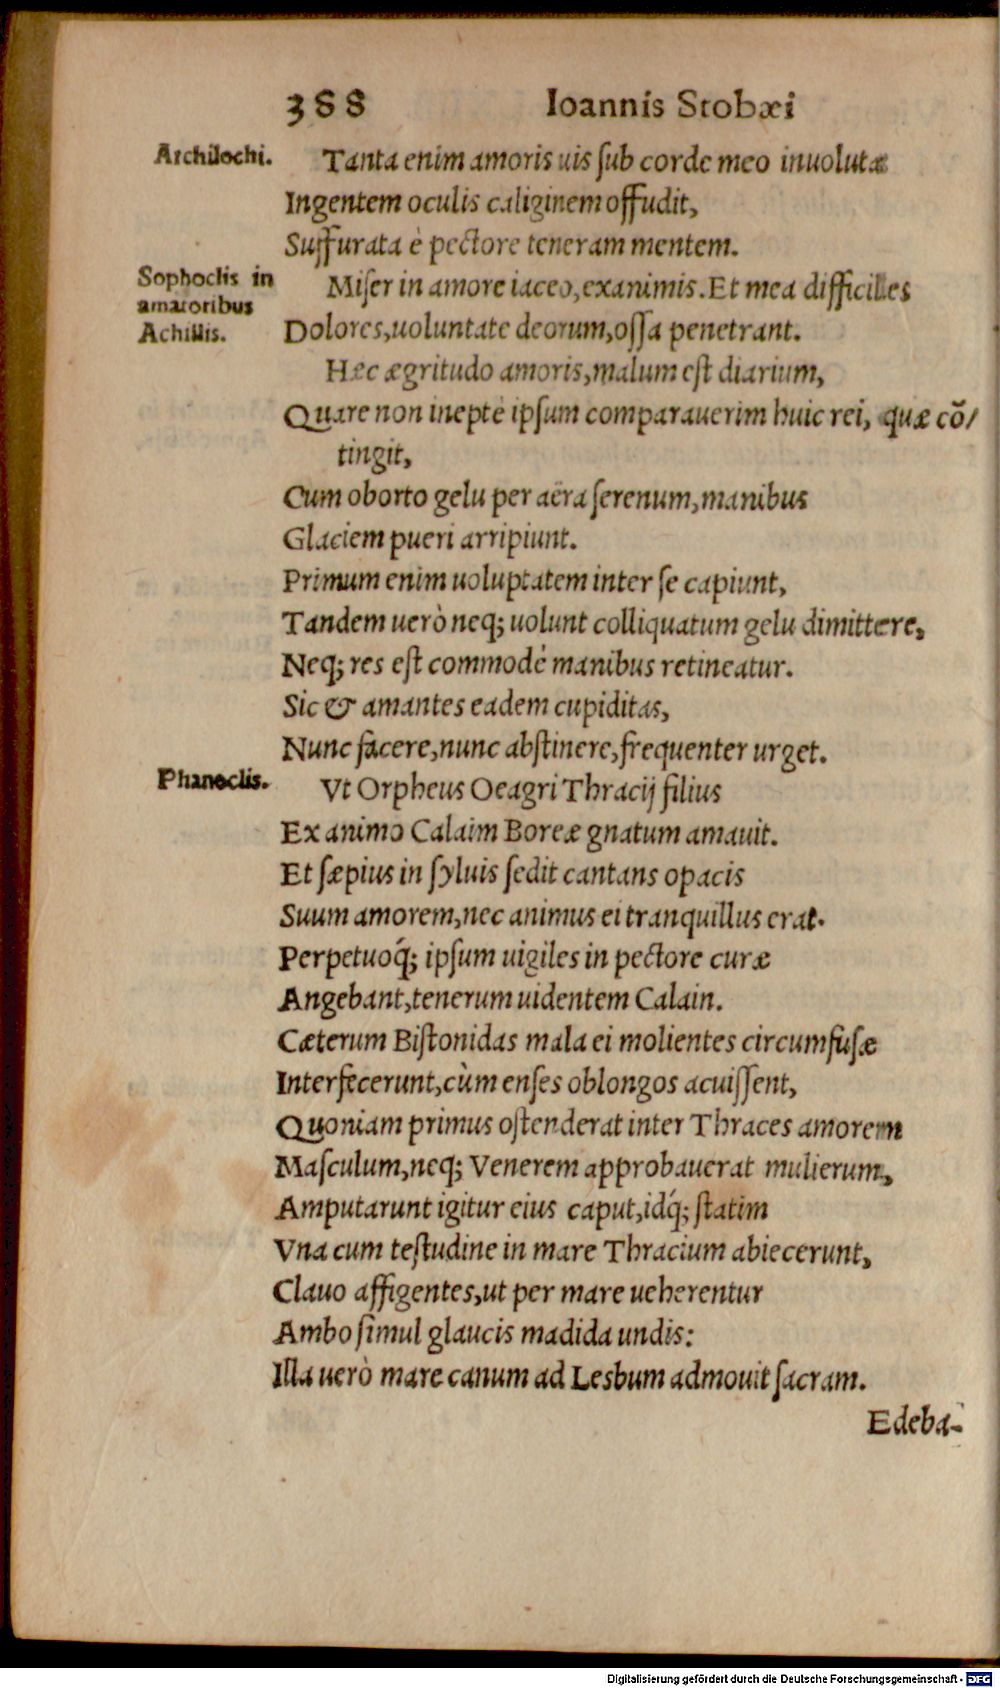 388 Ioannis Stobæi
Archilochi. Tanta enim amoris uis sub corde meo inuoluta
Ingentem oculis caliginem offudit,
Suffurata è pectore teneram mentem.
Sophoclis in
amatoribus
Achillis.
Miser in amore iaceo, exanimis. Et mea difficiles
Dolores, uoluntate deorum, ossa penetrant.
Hæc ægritudo amoris, malum est diarium,
Quare non ineptè ipsum comparauerim huic rei, quæ cō/
tingit,
Cum oborto gelu per aëra serenum, manibus
Glaciem pueri arripiunt.
Primum enim uoluptatem inter se capiunt,
Tandem uerò neq; uolunt colliquatum gelu dimittere,
Neq; res est commodè manibus retineatur.
Sic & amantes eadem cupiditas,
Nunc facere, nunc abstinere, frequenter urget.
Phanoclis. Vt Orpheus Oeagri Thracij filius
Ex animo Calaim Boreæ gnatum amauit.
Et sæpius in syluis sedit cantans opacis
Suum amorem, nec animus ei tranquillus erat.
Perpetuoq́; ipsum uigiles in pectore curæ
Angebant, tenerum uidentem Calain.
Cæterum Bistonidas mala ei molientes circumfusæ
Interfecerunt, cùm enses oblongos acuissent,
Quoniam primus ostenderat inter Thraces amorem
Masculum, neq; Venerem approbauerat mulierum,
Amputarunt igitur eius caput, idq́; statim
Vna cum testudine in mare Thracium abiecerunt,
Clauo affigentes, ut per mare ueherentur
Ambo simul glaucis madida undis:
Illa uerò mare canum ad Lesbum admouit sacram.
Edeba-
Digitalisierung gefördert durch die Deutsche Forschungsgemeinschaft - DFG